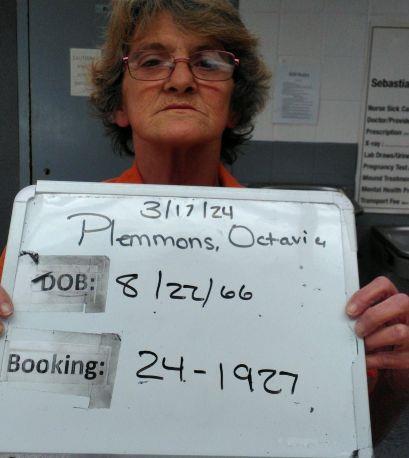 3/17/24
Plemmons, Octavia
DOB: 8/22/66
Booking: 24-1927
Sebastia
Nurse Sick Ca
Doctor/Provide
Prescription
X-ray
Lab Draws/Urina
Pregnancy Test
Wound Treatmen
Mental Health Pr
Transport Fee